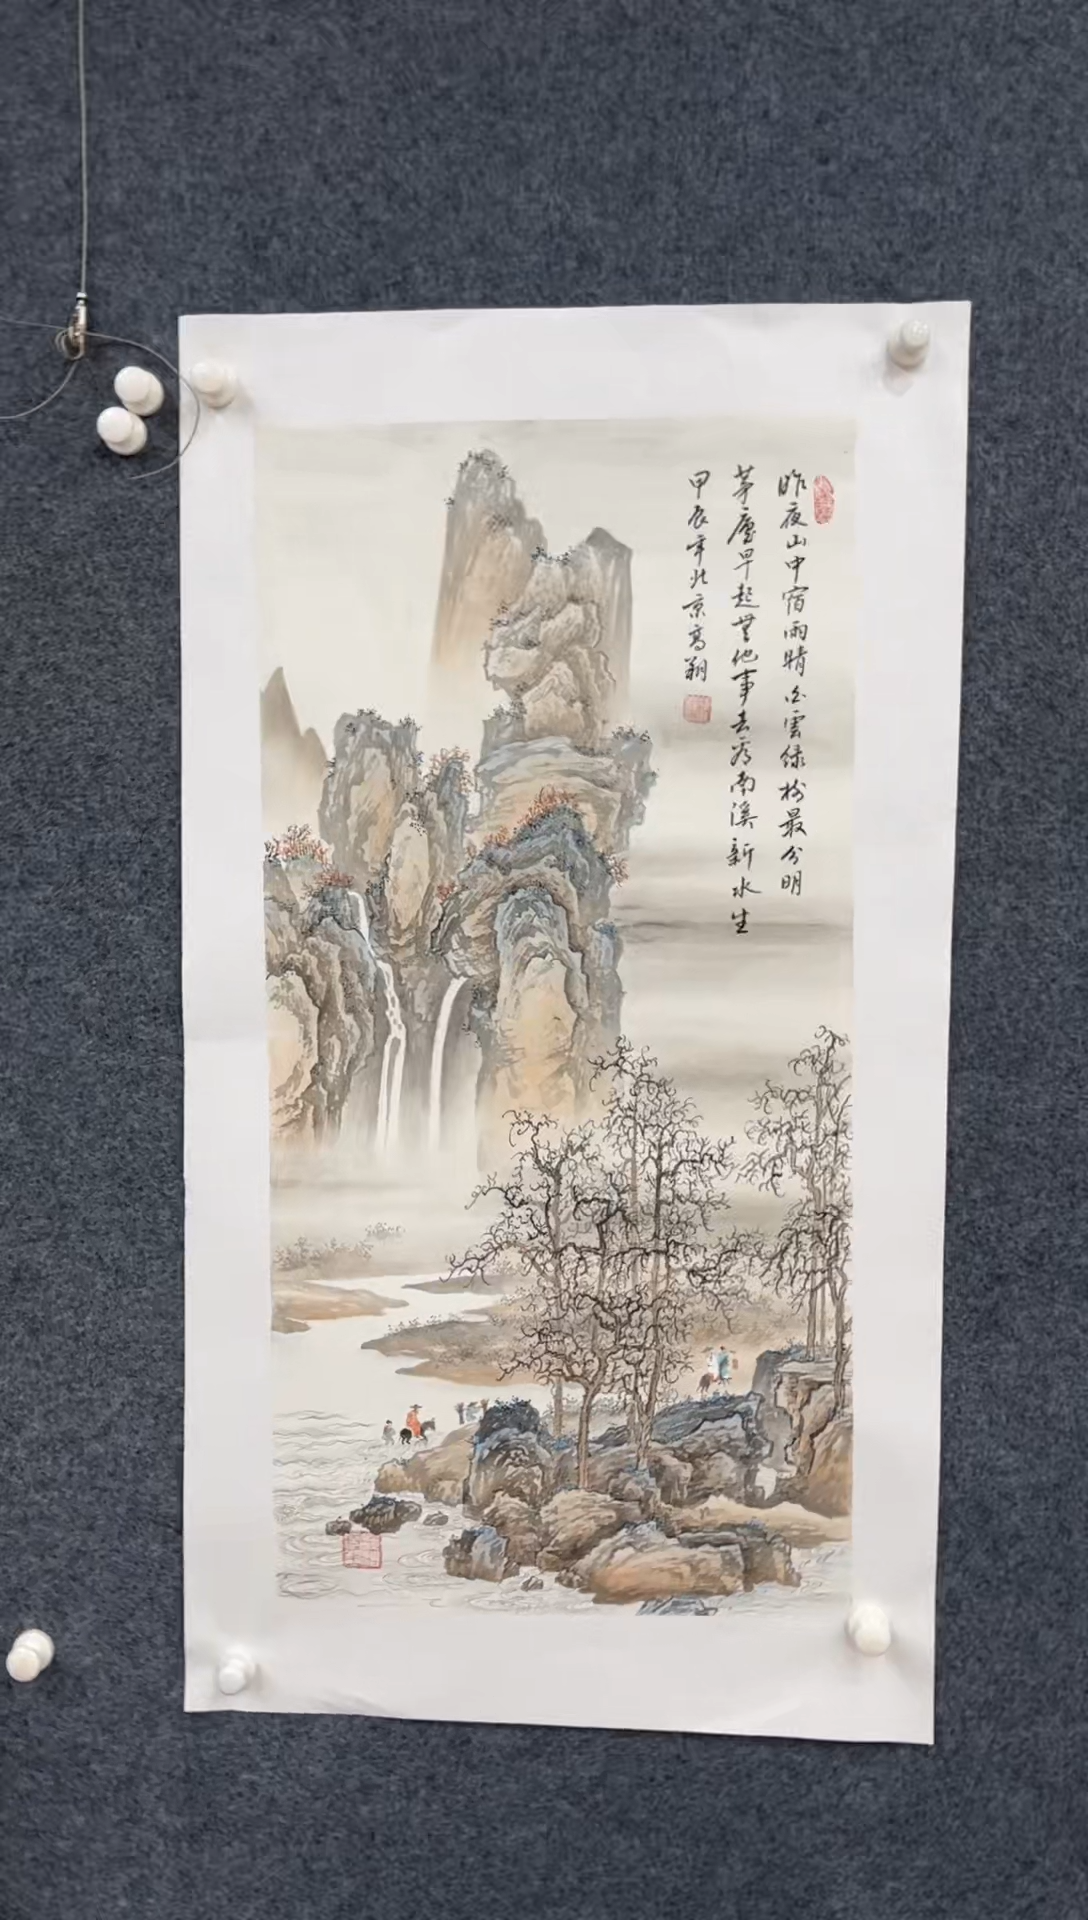 昨夜山中宿雨晴白雲緑樹最分明
茅廬早起無他事去看南溪新水生
甲辰年北京高翔